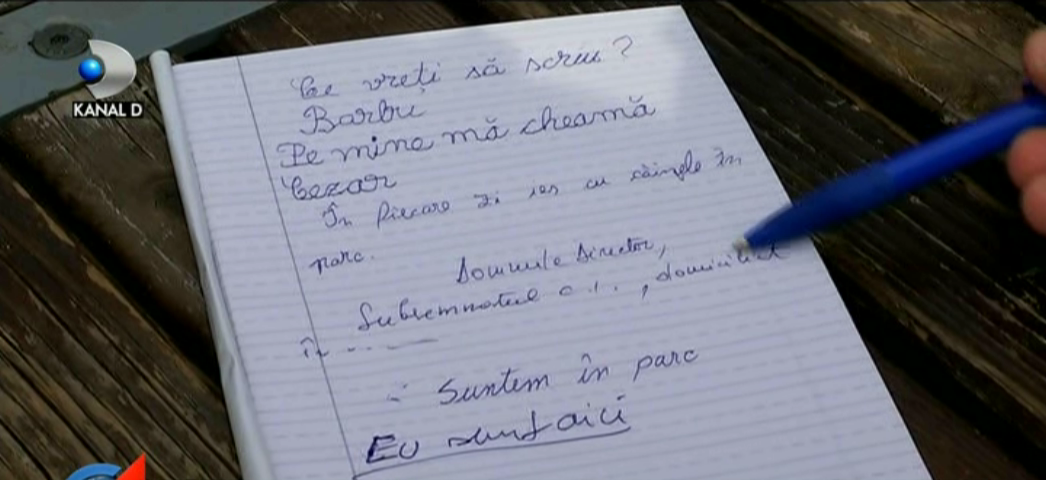 KANAL D
Ce vreți să scriu?
Barbu
Pe mine mă cheamă
Cezar
În fiecare zi ies cu câinele în
parc.
Domnule Director,
Subsemnatul , domiciliat
în
Suntem în parc
Eu sunt aici